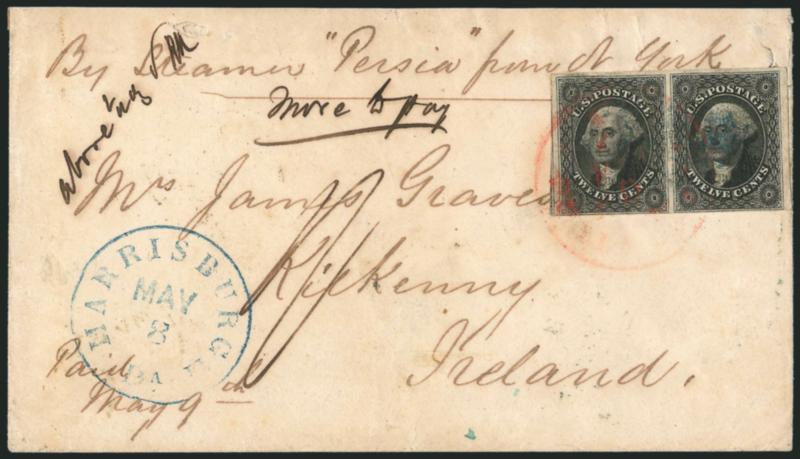 By Steamer "Persia" from N York
above ½ oz
More to pay
Mrs James Graves
Kilkenny
Ireland.
U.S. POSTAGE
TWELVE CENTS
U.S. POSTAGE
TWELVE CENTS
HARRISBURG
MAY
8
PA
Paid
May 9th